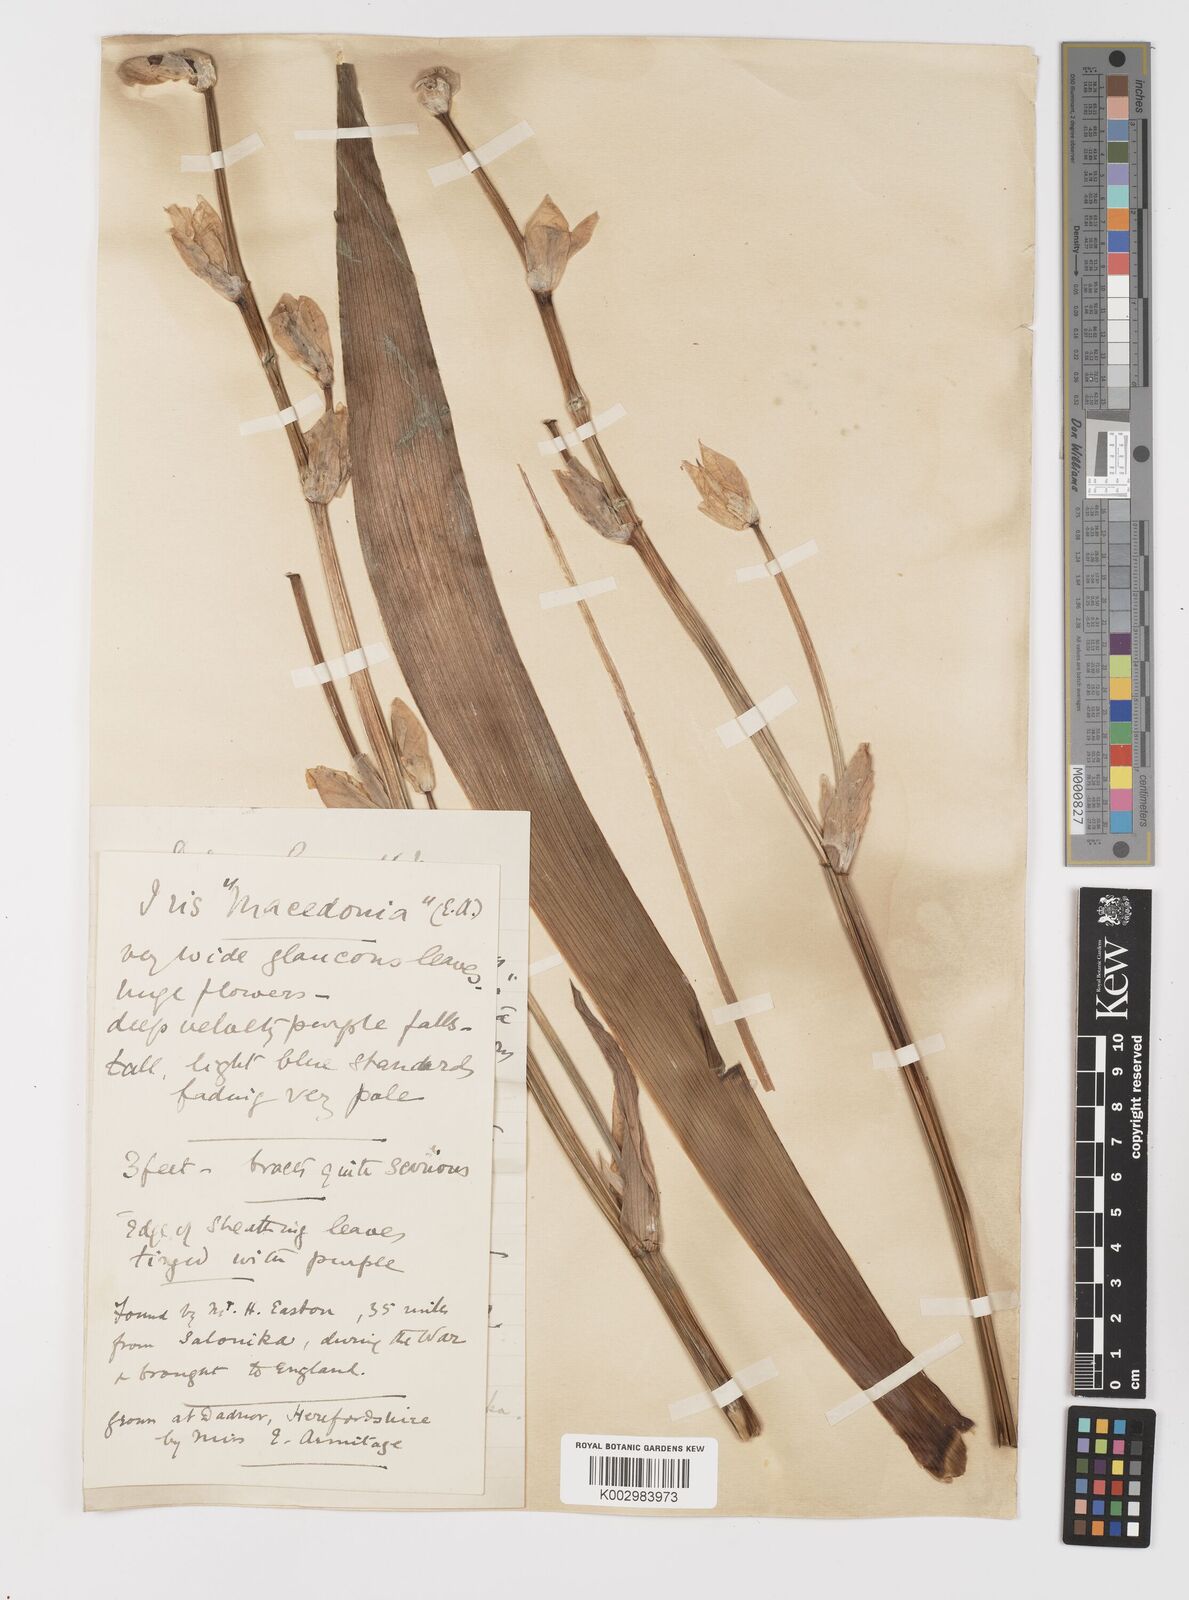 Iris "Macedonia" (E.A.)
very wide glaucous leaves.
huge flowers –
deep velvety purple falls –
tall, light blue standards
fading very pale
3 feet – bracts quite scarious
Edge of sheathing leaves
tinged with purple
Found by Mr. H. Easton, 35 miles
from Salonika, during the War
& brought to England.
grown at Dadnor, Herefordshire
by Miss E. Armitage
ROYAL BOTANIC GARDENS KEW
K002983973
inches
centimetres
Density
Don Williams
M000827
Kew
Royal Botanic Gardens
copyright reserved
0 1 2 3 4 5 6 7 8 9 10
cm